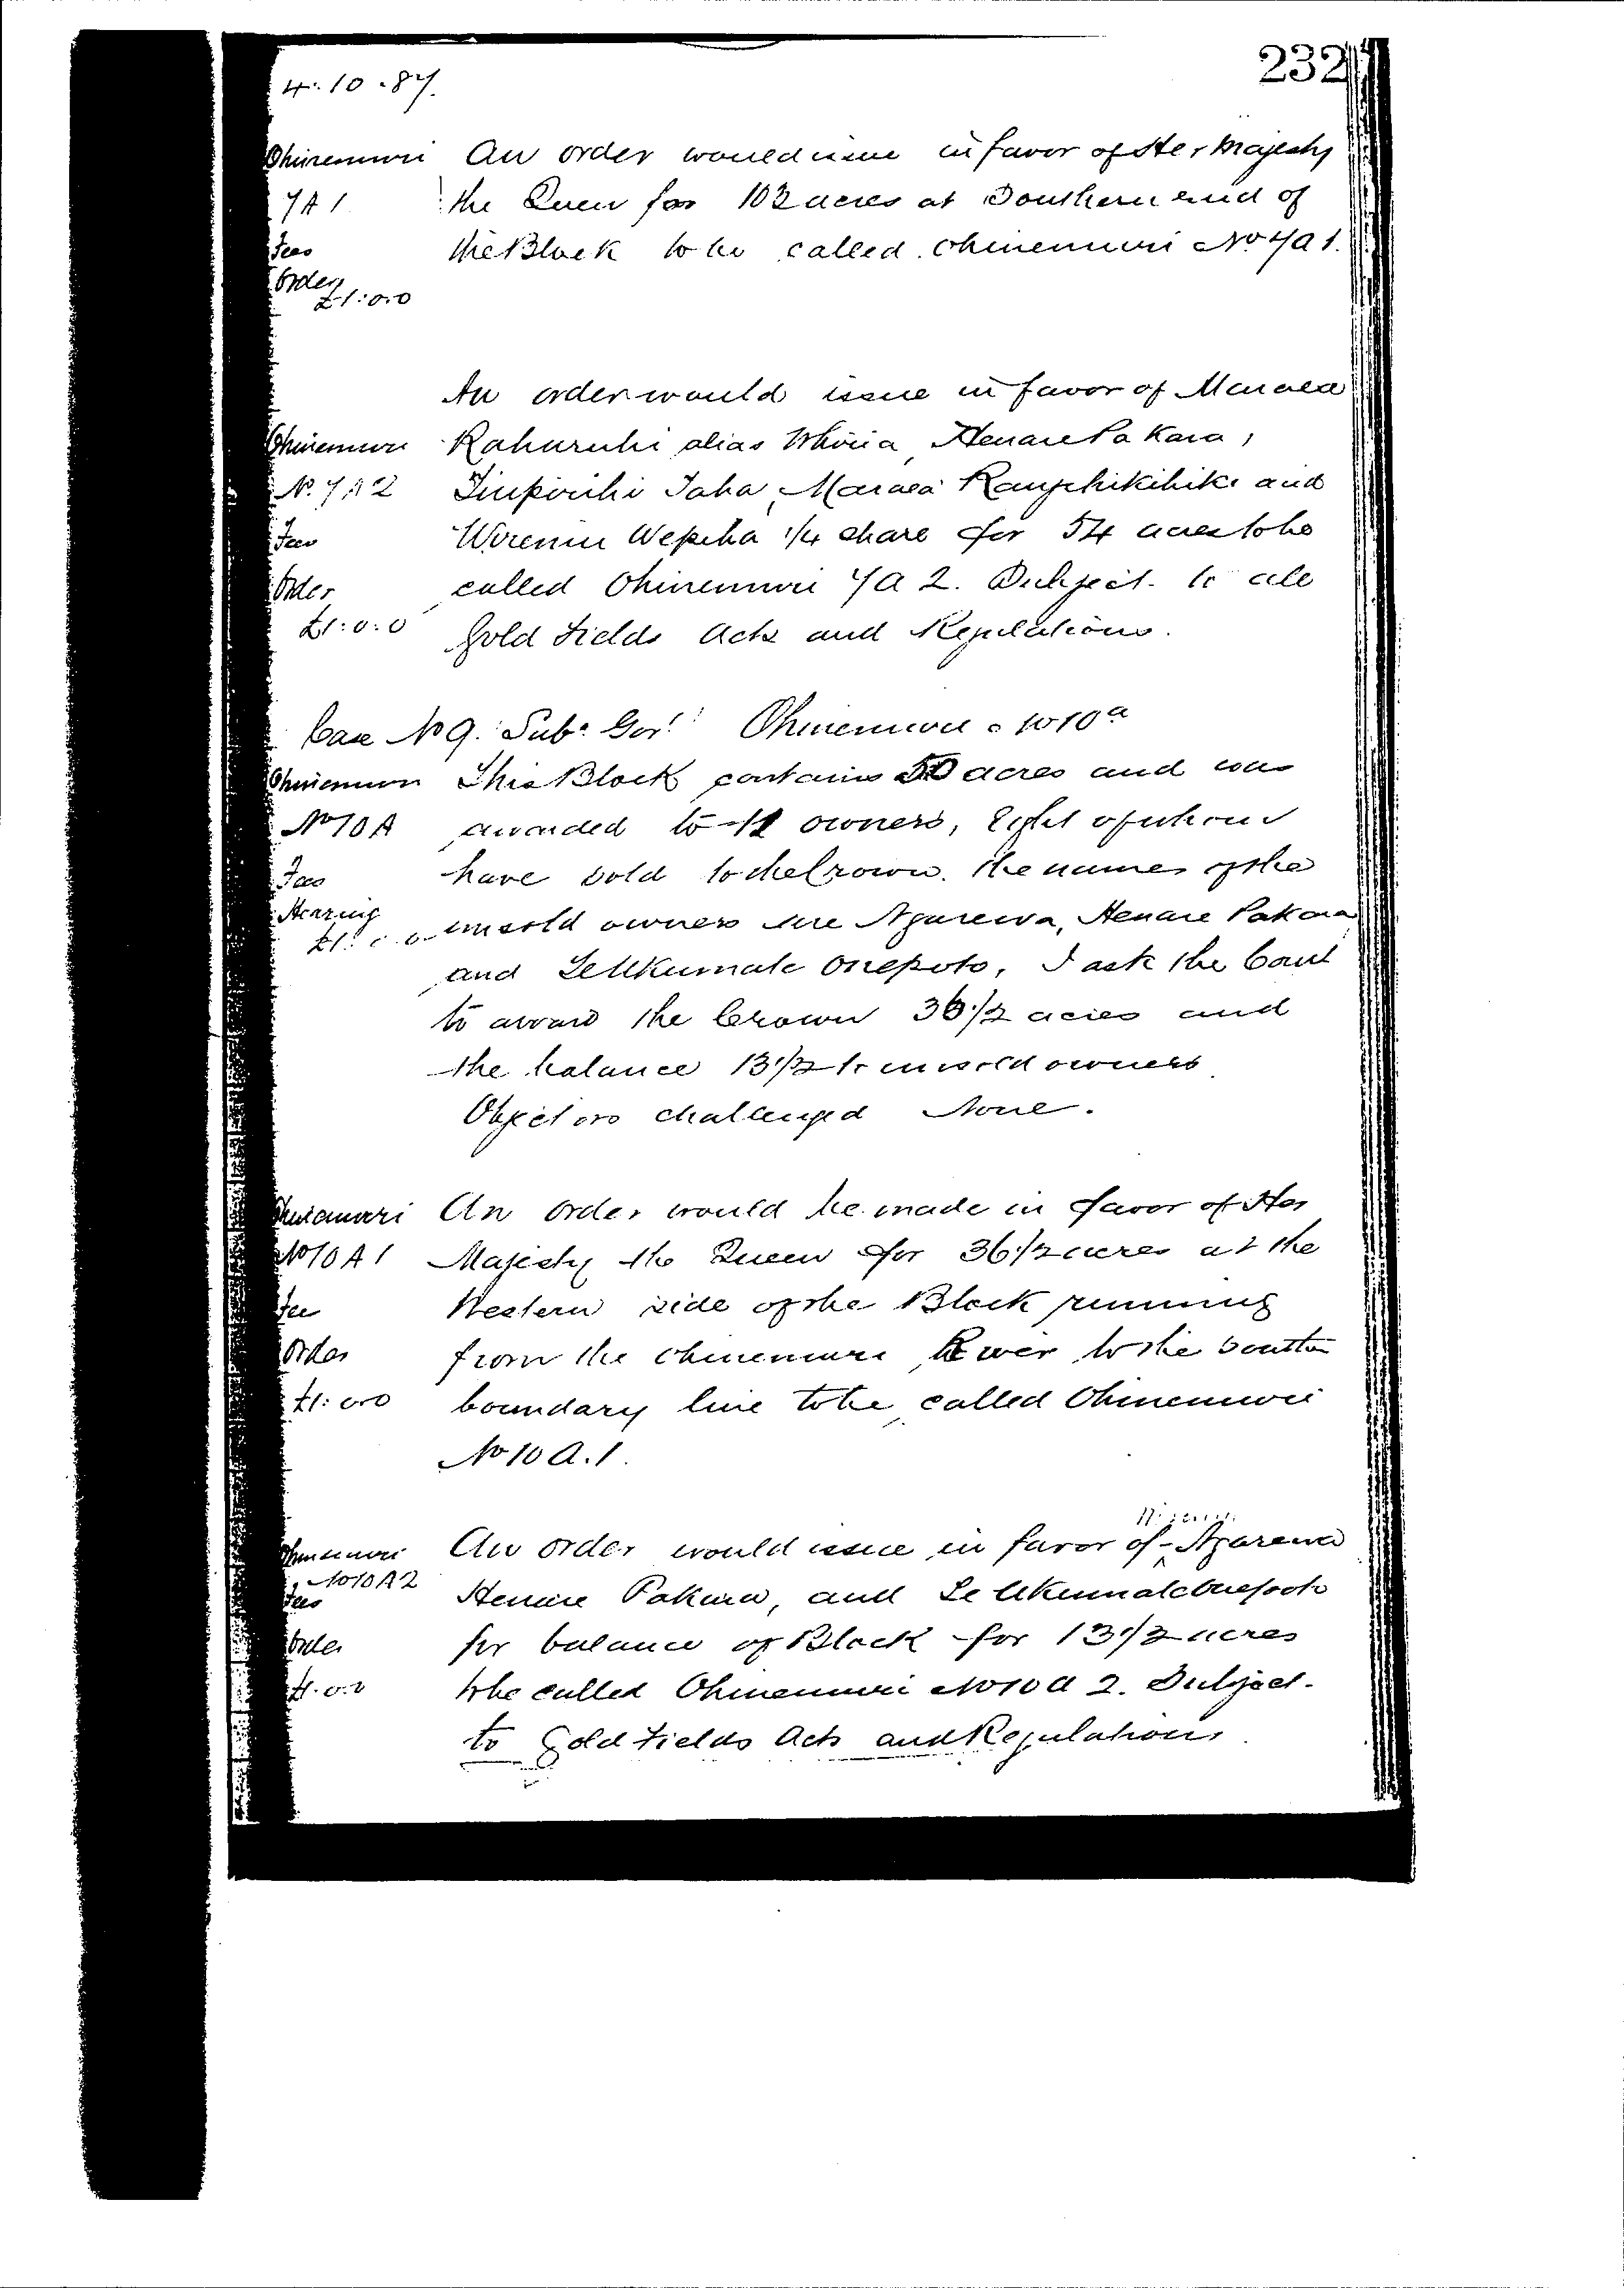 232
4.10.87.
Ohinemuri An order would issue in favor of Her Majesty
7A1 the Queen for 102 acres at Southern end of
Fees the Block to be called Ohinemuri No 7A1.
Order
£1:0:0
An order would issue in favor of Maraea
Ohinemuri Kahuruhi alias Whiria, Henare Pakara,
No. 7A2 Taha, Maraea and
Fees Wepiha 1/4 share for 54 acres to be
Order called Ohinemuri 7A2. Subject to all
£1:0:0 Gold Fields Acts and Regulations.
Case No 9. Subn Govt Ohinemuri No 10a
Ohinemuri This Block contains 50 acres and was
No 10A awarded to 11 owners, Eight of whom
Fees have sold to the Crown. The names of the
Hearing unsold owners are Ngarewa, Henare Pakara
£1:0:0
and Te Ukumate Onepoto, I ask the Court
to award the Crown 36 1/2 acres and
the balance 13 1/2 to unsold owners
Objectors challenged None.
Ohinemuri An order would be made in favor of Her
No 10A1 Majesty the Queen for 36 1/2 acres at the
Fee Western side of the Block running
Order from the Ohinemuri River to the Southern
£1:0:0 boundary line to be called Ohinemuri
No 10 A.1.
Ohinemuri An order would issue in favor of Ngarewa
No 10A2
Fees Henare Pakara, and Te Ukumate Onepoto
Order for balance of Block for 13 1/2 acres
£1.0.0 to be called Ohinemuri No 10 A 2. Subject
to Gold Fields Acts and Regulations.